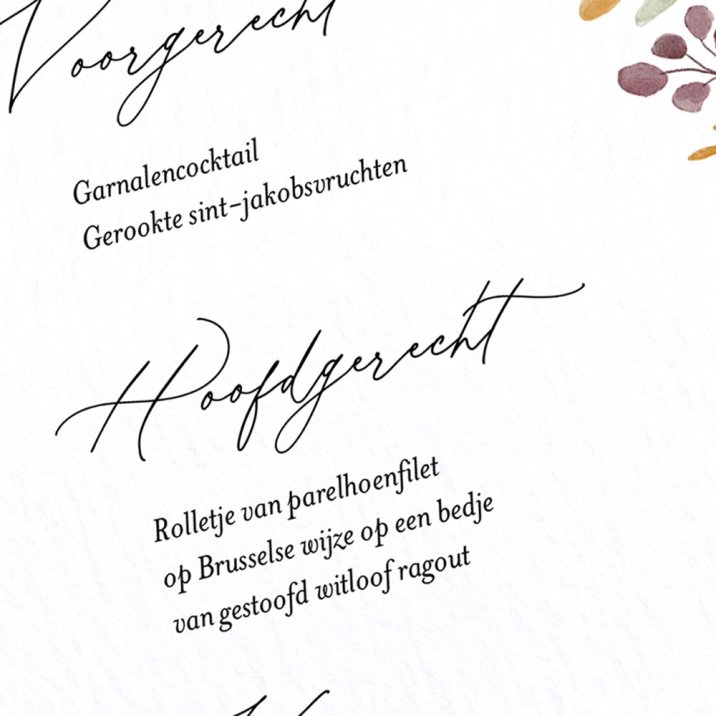 Voorgerecht
Garnalencocktail
Gerookte sint-jakobsvruchten
Hoofdgerecht
Rolletje van parelhoenfilet
op Brusselse wijze op een bedje
van gestoofd witloof ragout